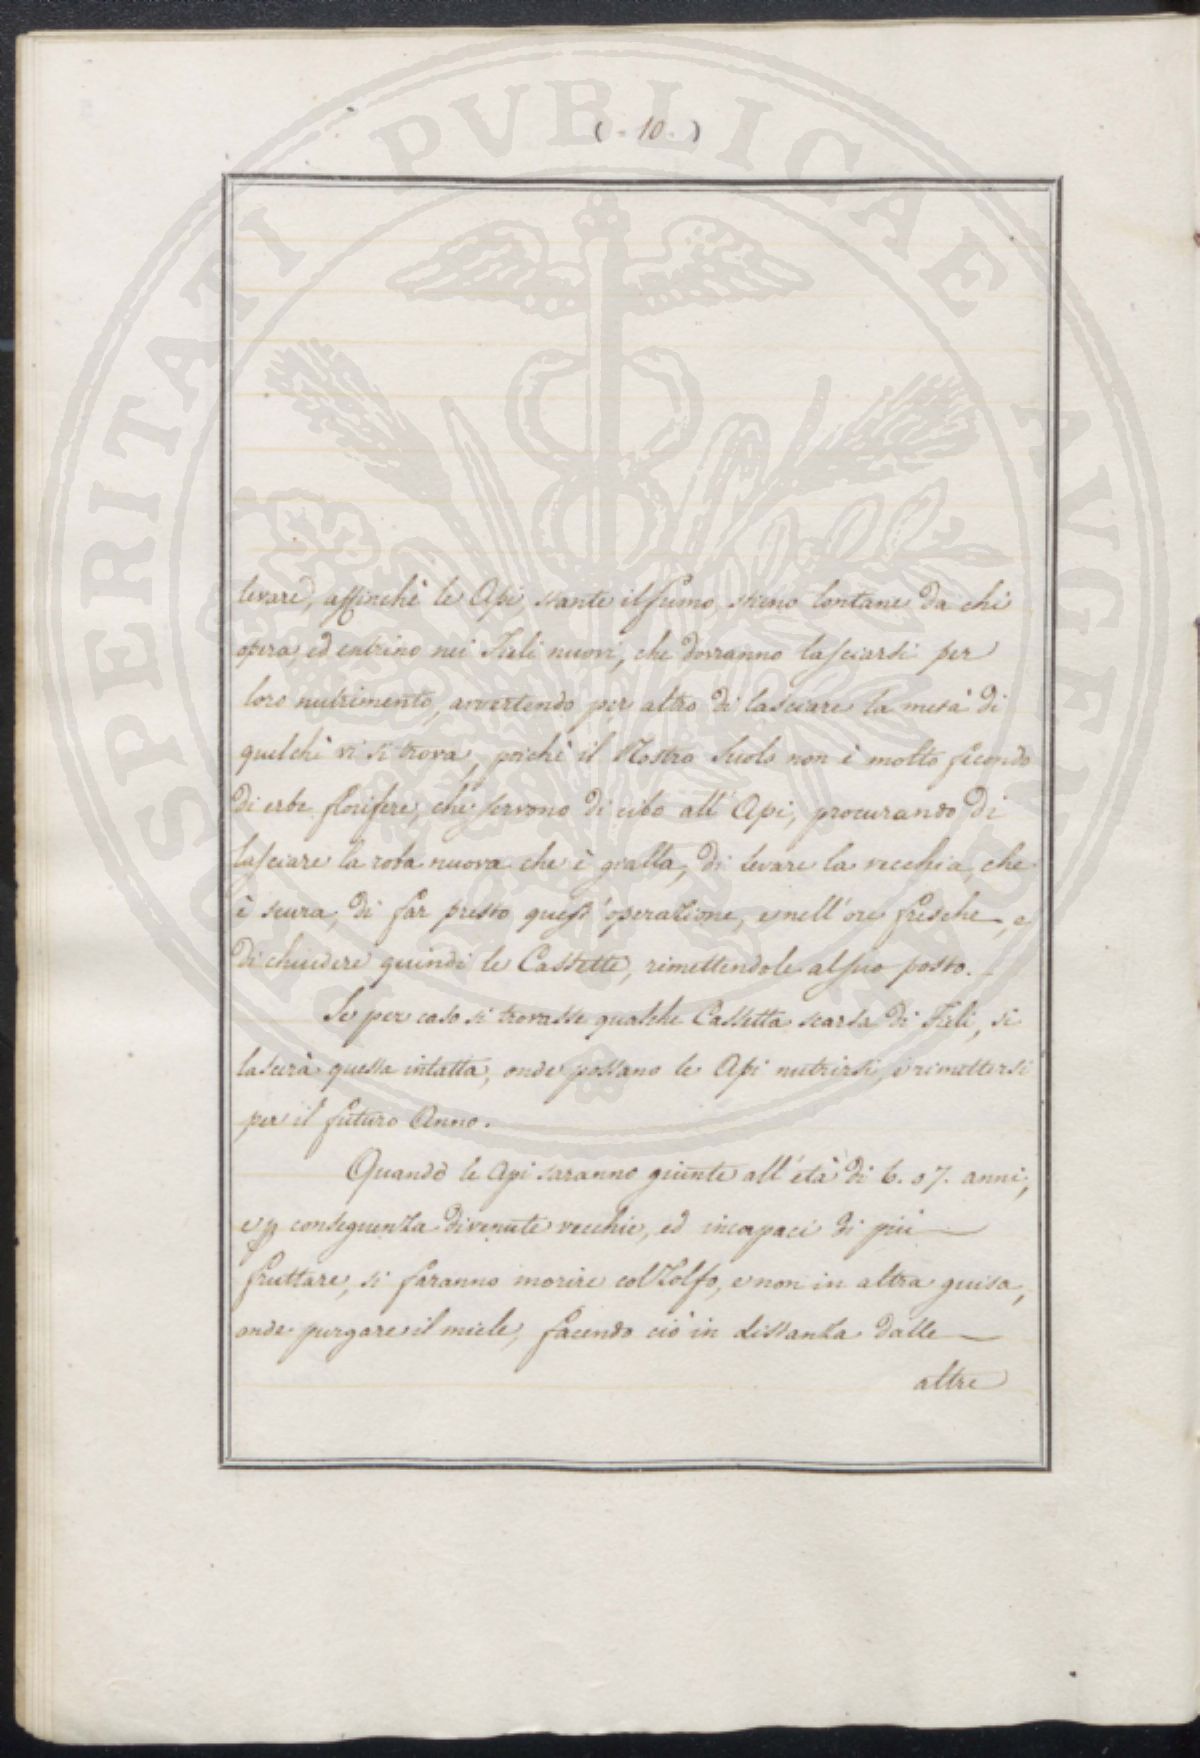 (. 10. )
levare, affinchè le Api, stante il fumo, stieno lontane da chi
opera, ed entrino nei Fieli nuovi, che dovranno lasciarsi per
loro nutrimento, avvertendo per altro di lasciare la metà di
quelchè vi si trova, poichè il Nostro Suolo non è molto fecondo
di erbe florifere, che servono di cibo all'Api, procurando di
lasciare la roba nuova che è gialla, di levare la vecchia, che
è scura, di far presto quest'operazione, e nell'ore fresche, e
di chiudere quindi le Cassette, rimettendole al suo posto.
Se per caso si trovasse qualche Cassetta scarsa di Fieli, si
lascerà questa intatta, onde possano le Api nutrirsi, e rimettersi
per il futuro Anno.
Quando le Api saranno giunte all'età di 6. o 7. anni,
e p conseguenza divenute vecchie, ed incapaci di più
fruttare, si faranno morire col Zolfo, e non in altra guisa,
onde purgare il miele, facendo ciò in distanza dalle
altre
PROSPERITATI PVBLICAE AVGENDAE